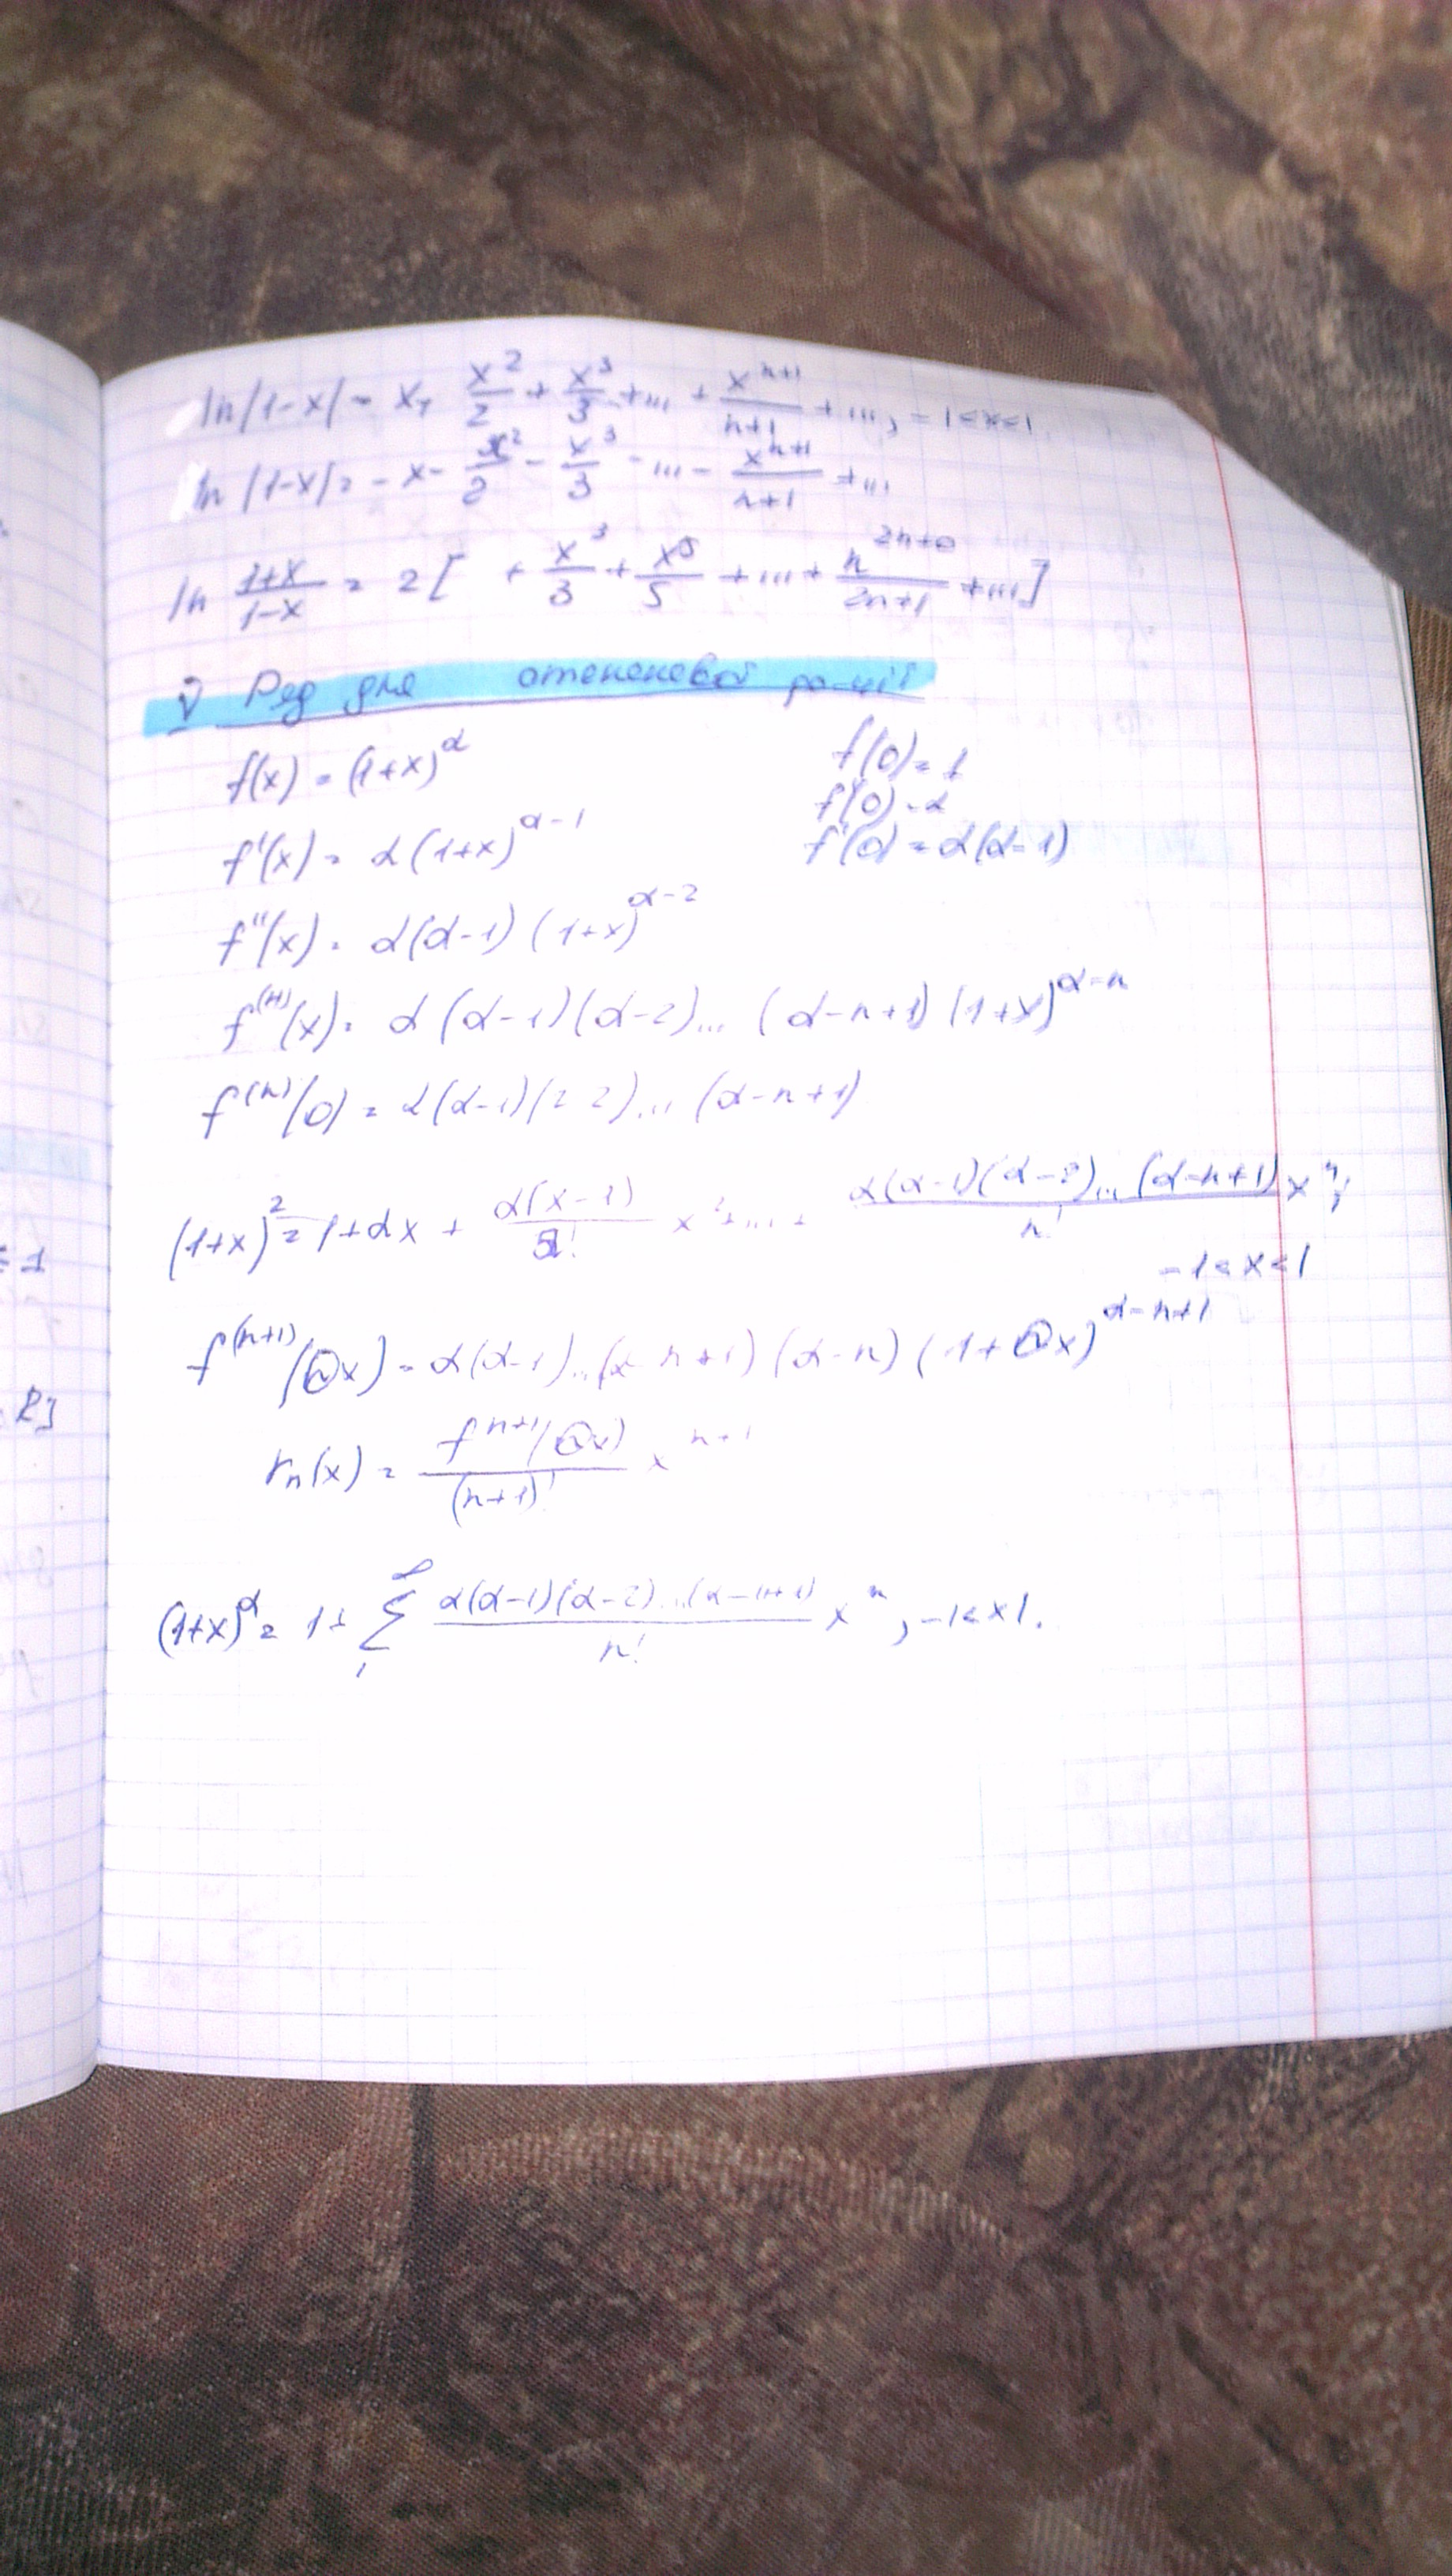 ln(1-x) = x + x²/2 + x³/3 + ... + xⁿ⁺¹/n+1 + ..., -1<x<1
ln(1-x) = -x - x²/2 - x³/3 - ... - xⁿ⁺¹/n+1 + ...
ln 1+x/1-x = 2[ + x³/3 + x⁵/5 + ... + /2n+1 + ...]
V Ряд для степеневой
f(x) = (1+x)^α f(0) = 1
f'(x) = α(1+x)^α-1 f'(0) = α
f''(x) = α(α-1)(1+x)^α-2 f''(0) = α(α-1)
f⁽ⁿ⁾(x) = α(α-1)(α-2)...(α-n+1)(1+x)^α-n
f⁽ⁿ⁾(0) = α(α-1)(2-2)...(α-n+1)
(1+x)² = 1+αx + α(x-1)/2! x² + ... + α(α-1)(α-2)...(α-n+1)/n! xⁿ;
-1<x<1
f⁽ⁿ⁺¹⁾(Θx) = α(α-1)...(α-n+1)(α-n)(1+Θx)^α-n+1
rₙ(x) = fⁿ⁺¹(Θx)/(n+1)! xⁿ⁺¹
(1+x)^α = 1+ ∞Σ1 α(α-1)(α-2)...(α-n+1)/n! xⁿ, -1<x1.
= 1
R]